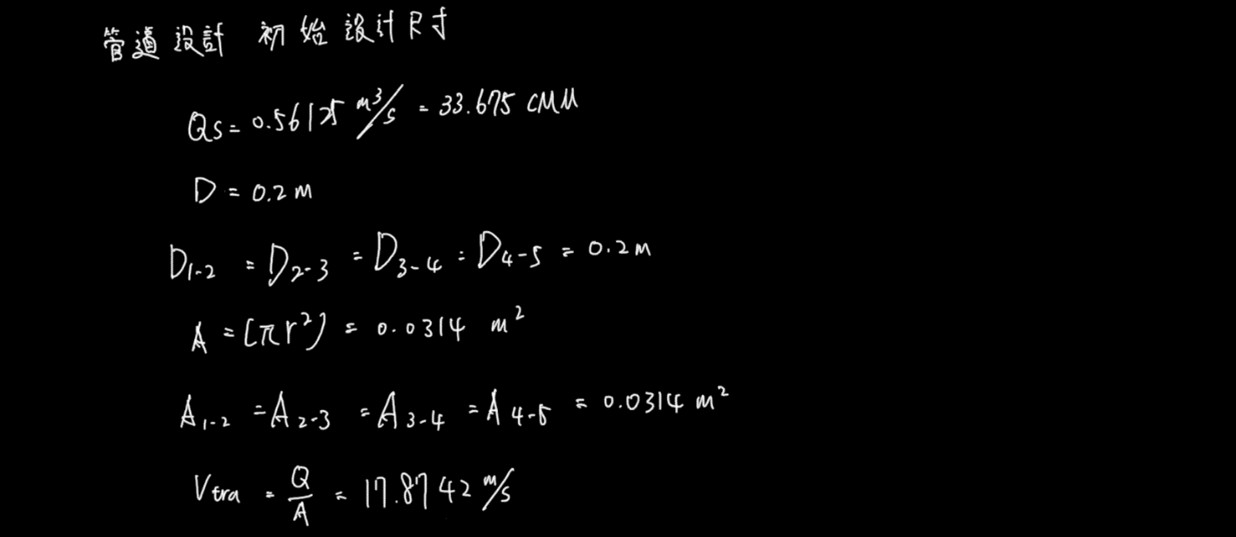 管道設計 初始設計尺寸
Qs = 0.56125 m³/s = 33.675 CMM
D = 0.2 m
D₁₋₂ = D₂₋₃ = D₃₋₄ = D₄₋₅ = 0.2 m
A = [πr²] = 0.0314 m²
A₁₋₂ = A₂₋₃ = A₃₋₄ = A₄₋₅ = 0.0314 m²
Vtra = Q/A = 17.8742 m/s